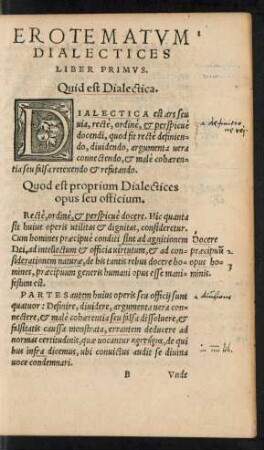 EROTEMATVM
DIALECTICES
LIBER PRIMVS.
Quid est Dialectica.
DIALECTICA est ars seu
uia, rectè, ordinè, & perspicuè
docendi, quod fit rectè definiendo,
diuidendo, argumenta uera
connectendo, & malè cohærentia
seu falsa retexendo & refutando.
Quod est proprium Dialectices
opus seu officium.
Rectè, ordinè, & perspicuè docere. Hic quanta
sit huius operis utilitas & dignitas, consideretur.
Cum homines præcipuè conditi sint ad agnitionem
Dei, ad intellectum & officia uirtutum, & ad considerationem
naturæ, de his tantis rebus docere homines,
præcipuum generis humani opus esse manifestum
est.
Docere
præcipuũ
opus ho
minis.
PARTES autem huius operis seu officij sunt
quatuor: Definire, diuidere, argumenta uera connectere,
& malè cohærentia seu falsa dissoluere, &
falsitatis caussa monstrata, errantem deducere ad
normas certitudinis, quæ uocantur κριτήρια, de quibus
infra dicemus, ubi conuictus audit se diuina
uoce condemnari.
B Vnde